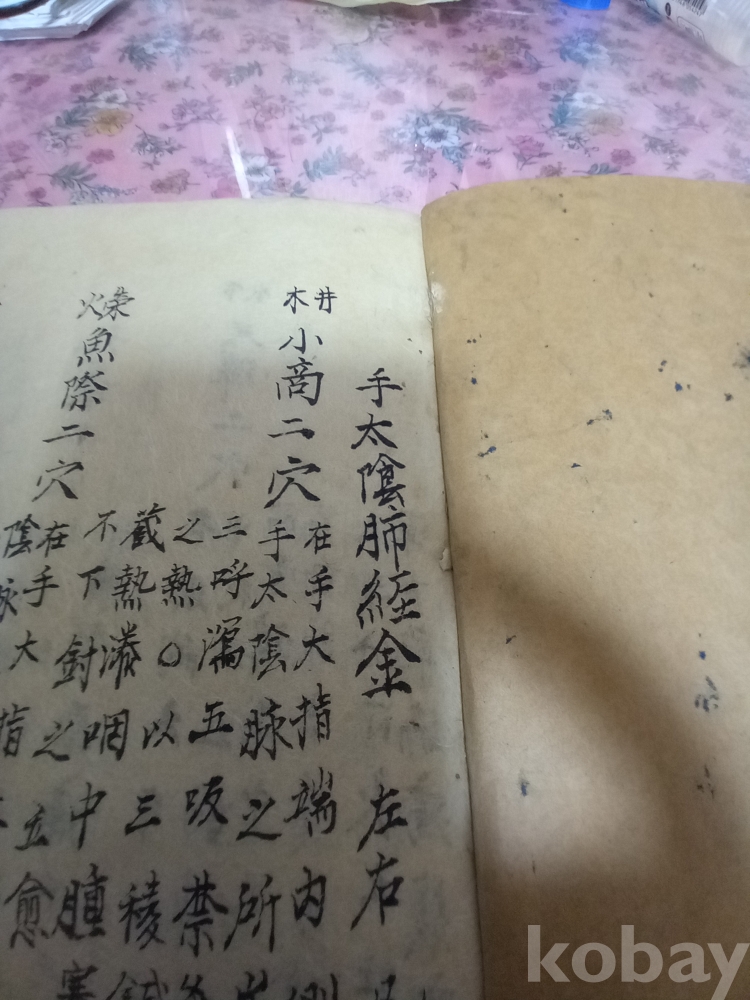 手太陰肺經金 左右
井
木
小商二穴
在手大指端內側
手太陰脉之所出
三呼瀉五吸禁
之熱〇以三稜鍼
藏熱湊咽中腫塞
不下針之立愈
榮
火
魚際二穴
在手大指
陰脉
kobay